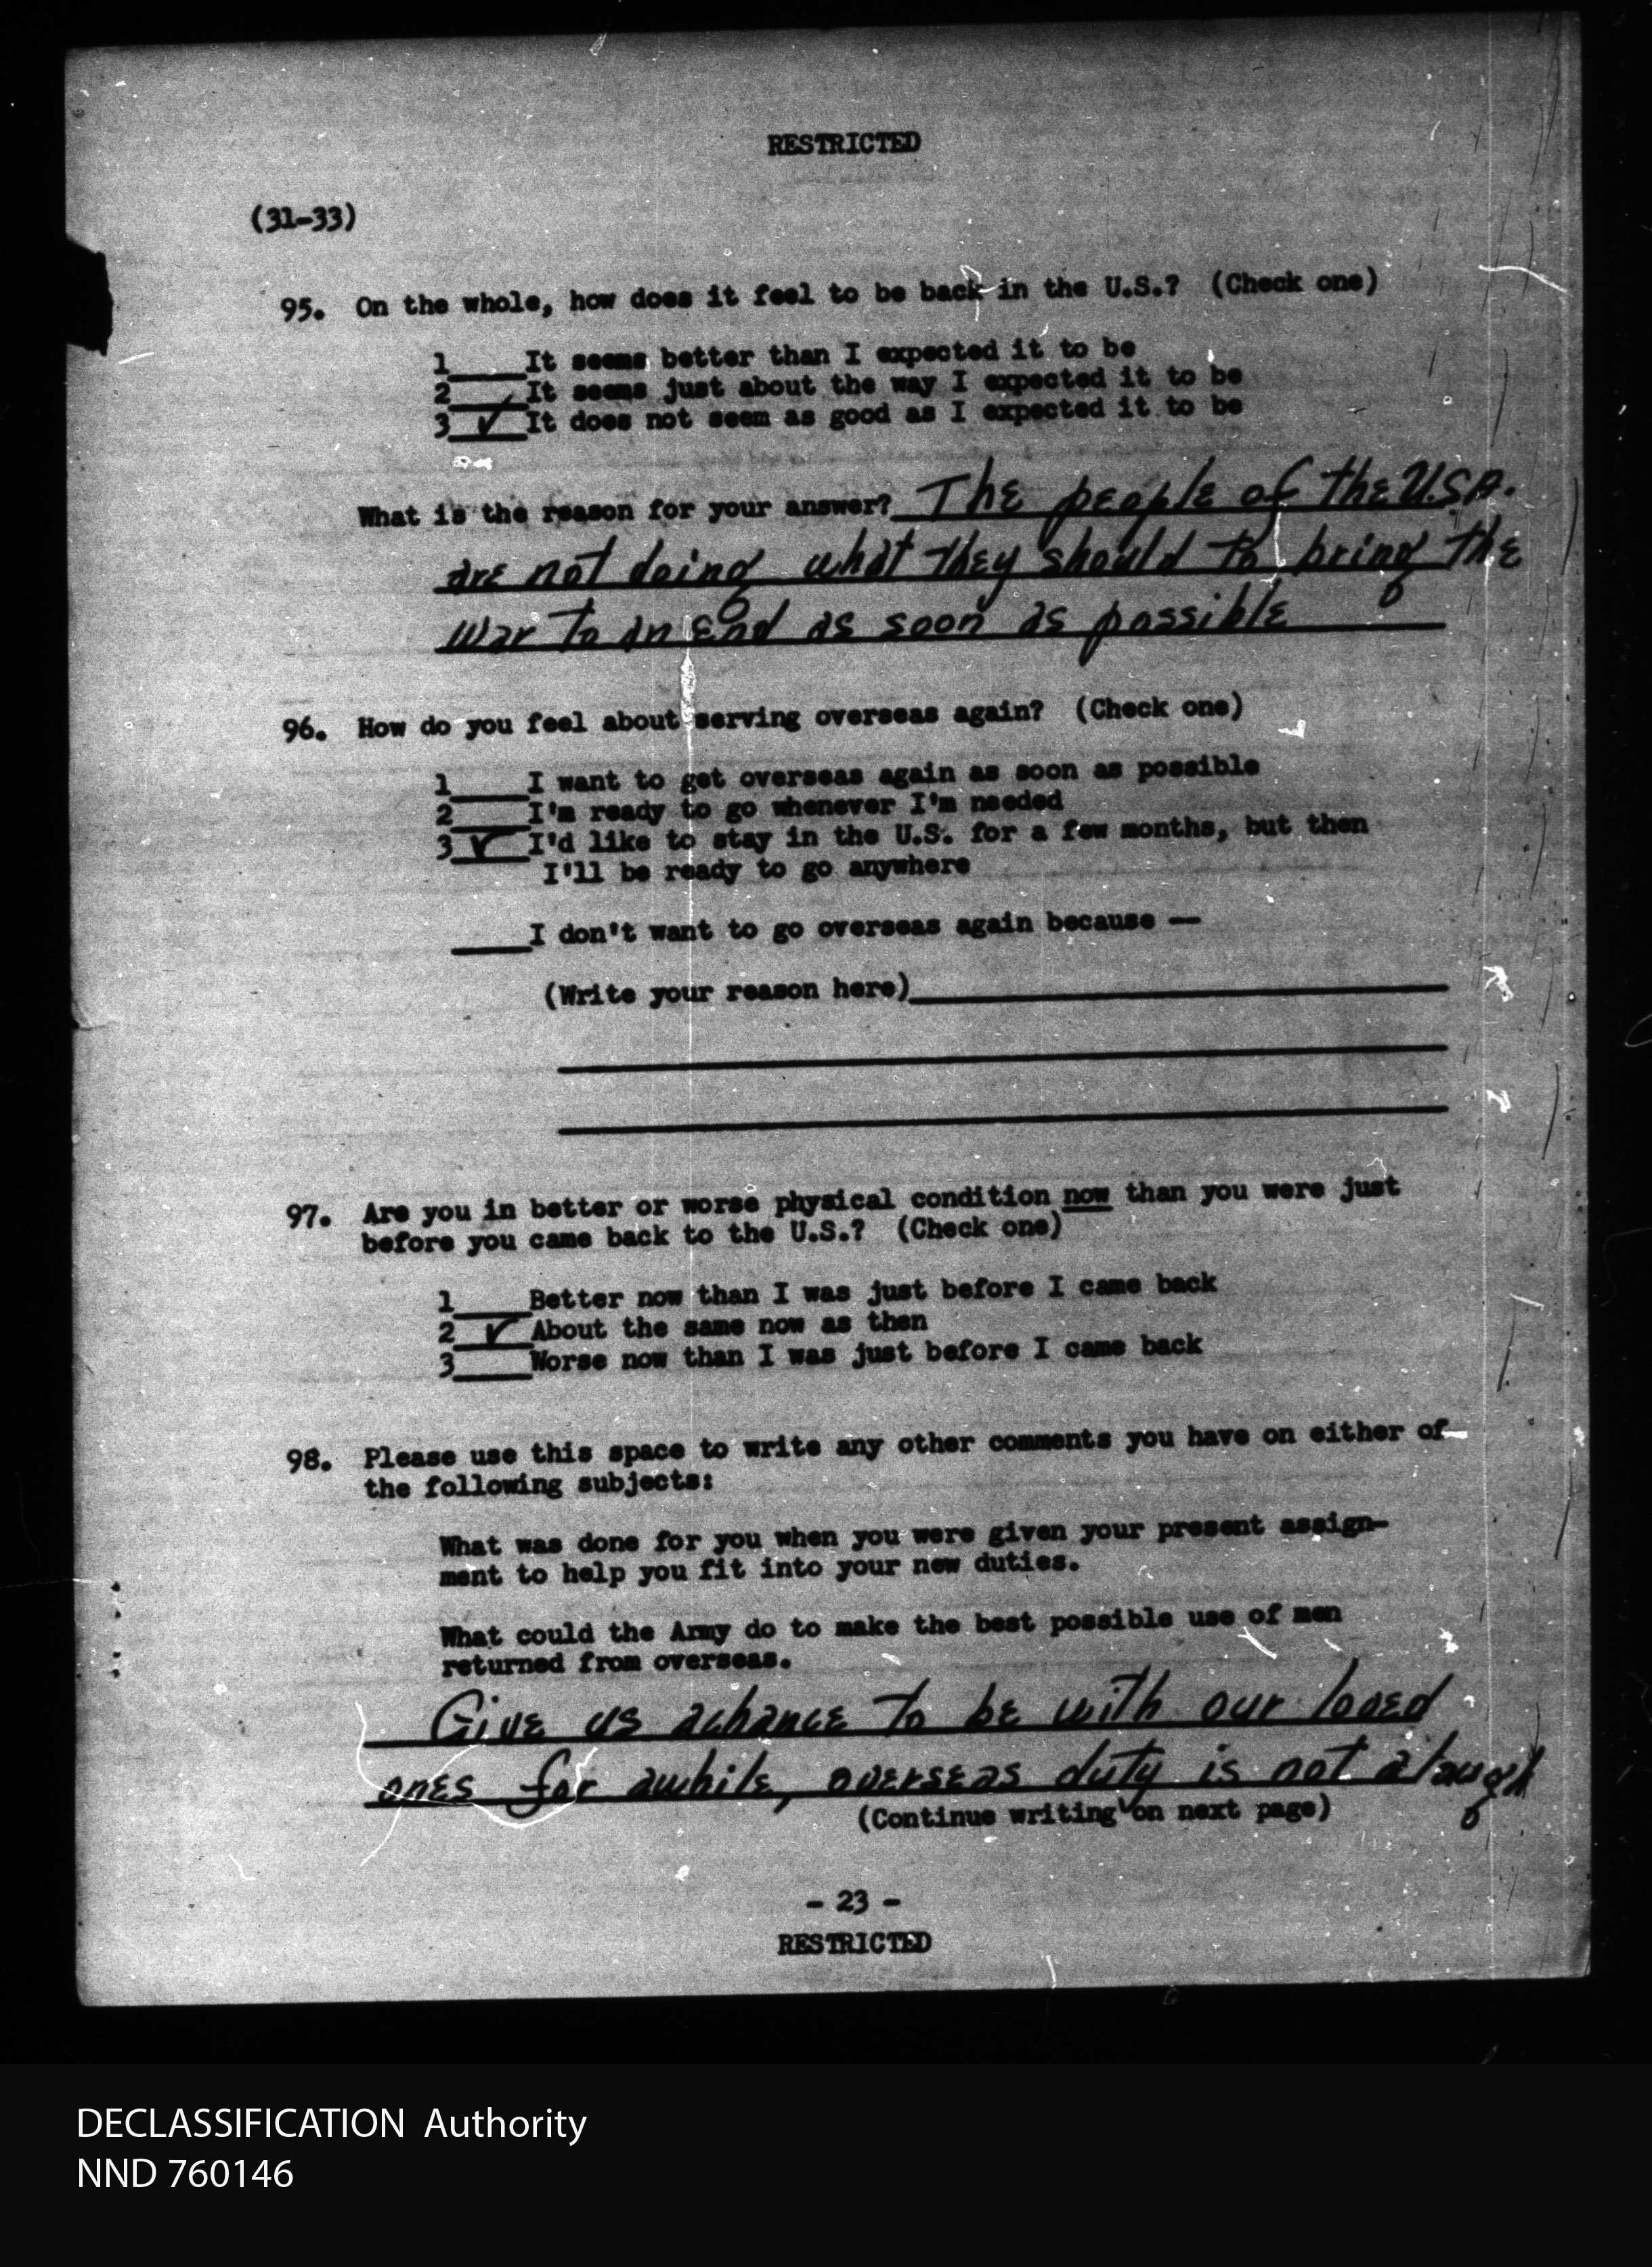 RESTRICTED
(31-33)
95. On the whole, how does it feel to be back in the U.S.? (Check one)
1____It seems better than I expected it to be
2____It seems just about the way I expected it to be
3_✓_It does not seem as good as I expected it to be
What is the reason for your answer? The people of the U.S.A.
are not doing what they should to bring the
war to an end as soon as possible
96. How do you feel about serving overseas again? (Check one)
1____I want to get overseas again as soon as possible
2____I'm ready to go whenever I'm needed
3_✓_I'd like to stay in the U.S. for a few months, but then
I'll be ready to go anywhere
____I don't want to go overseas again because —
(Write your reason here)
97. Are you in better or worse physical condition now than you were just
before you came back to the U.S.? (Check one)
1____Better now than I was just before I came back
2_✓_About the same now as then
3____Worse now than I was just before I came back
98. Please use this space to write any other comments you have on either of
the following subjects:
What was done for you when you were given your present assign-
ment to help you fit into your new duties.
What could the Army do to make the best possible use of men
returned from overseas.
Give us a chance to be with our loved
ones for awhile, overseas duty is not a laugh
(Continue writing on next page)
- 23 -
RESTRICTED
DECLASSIFICATION Authority
NND 760146